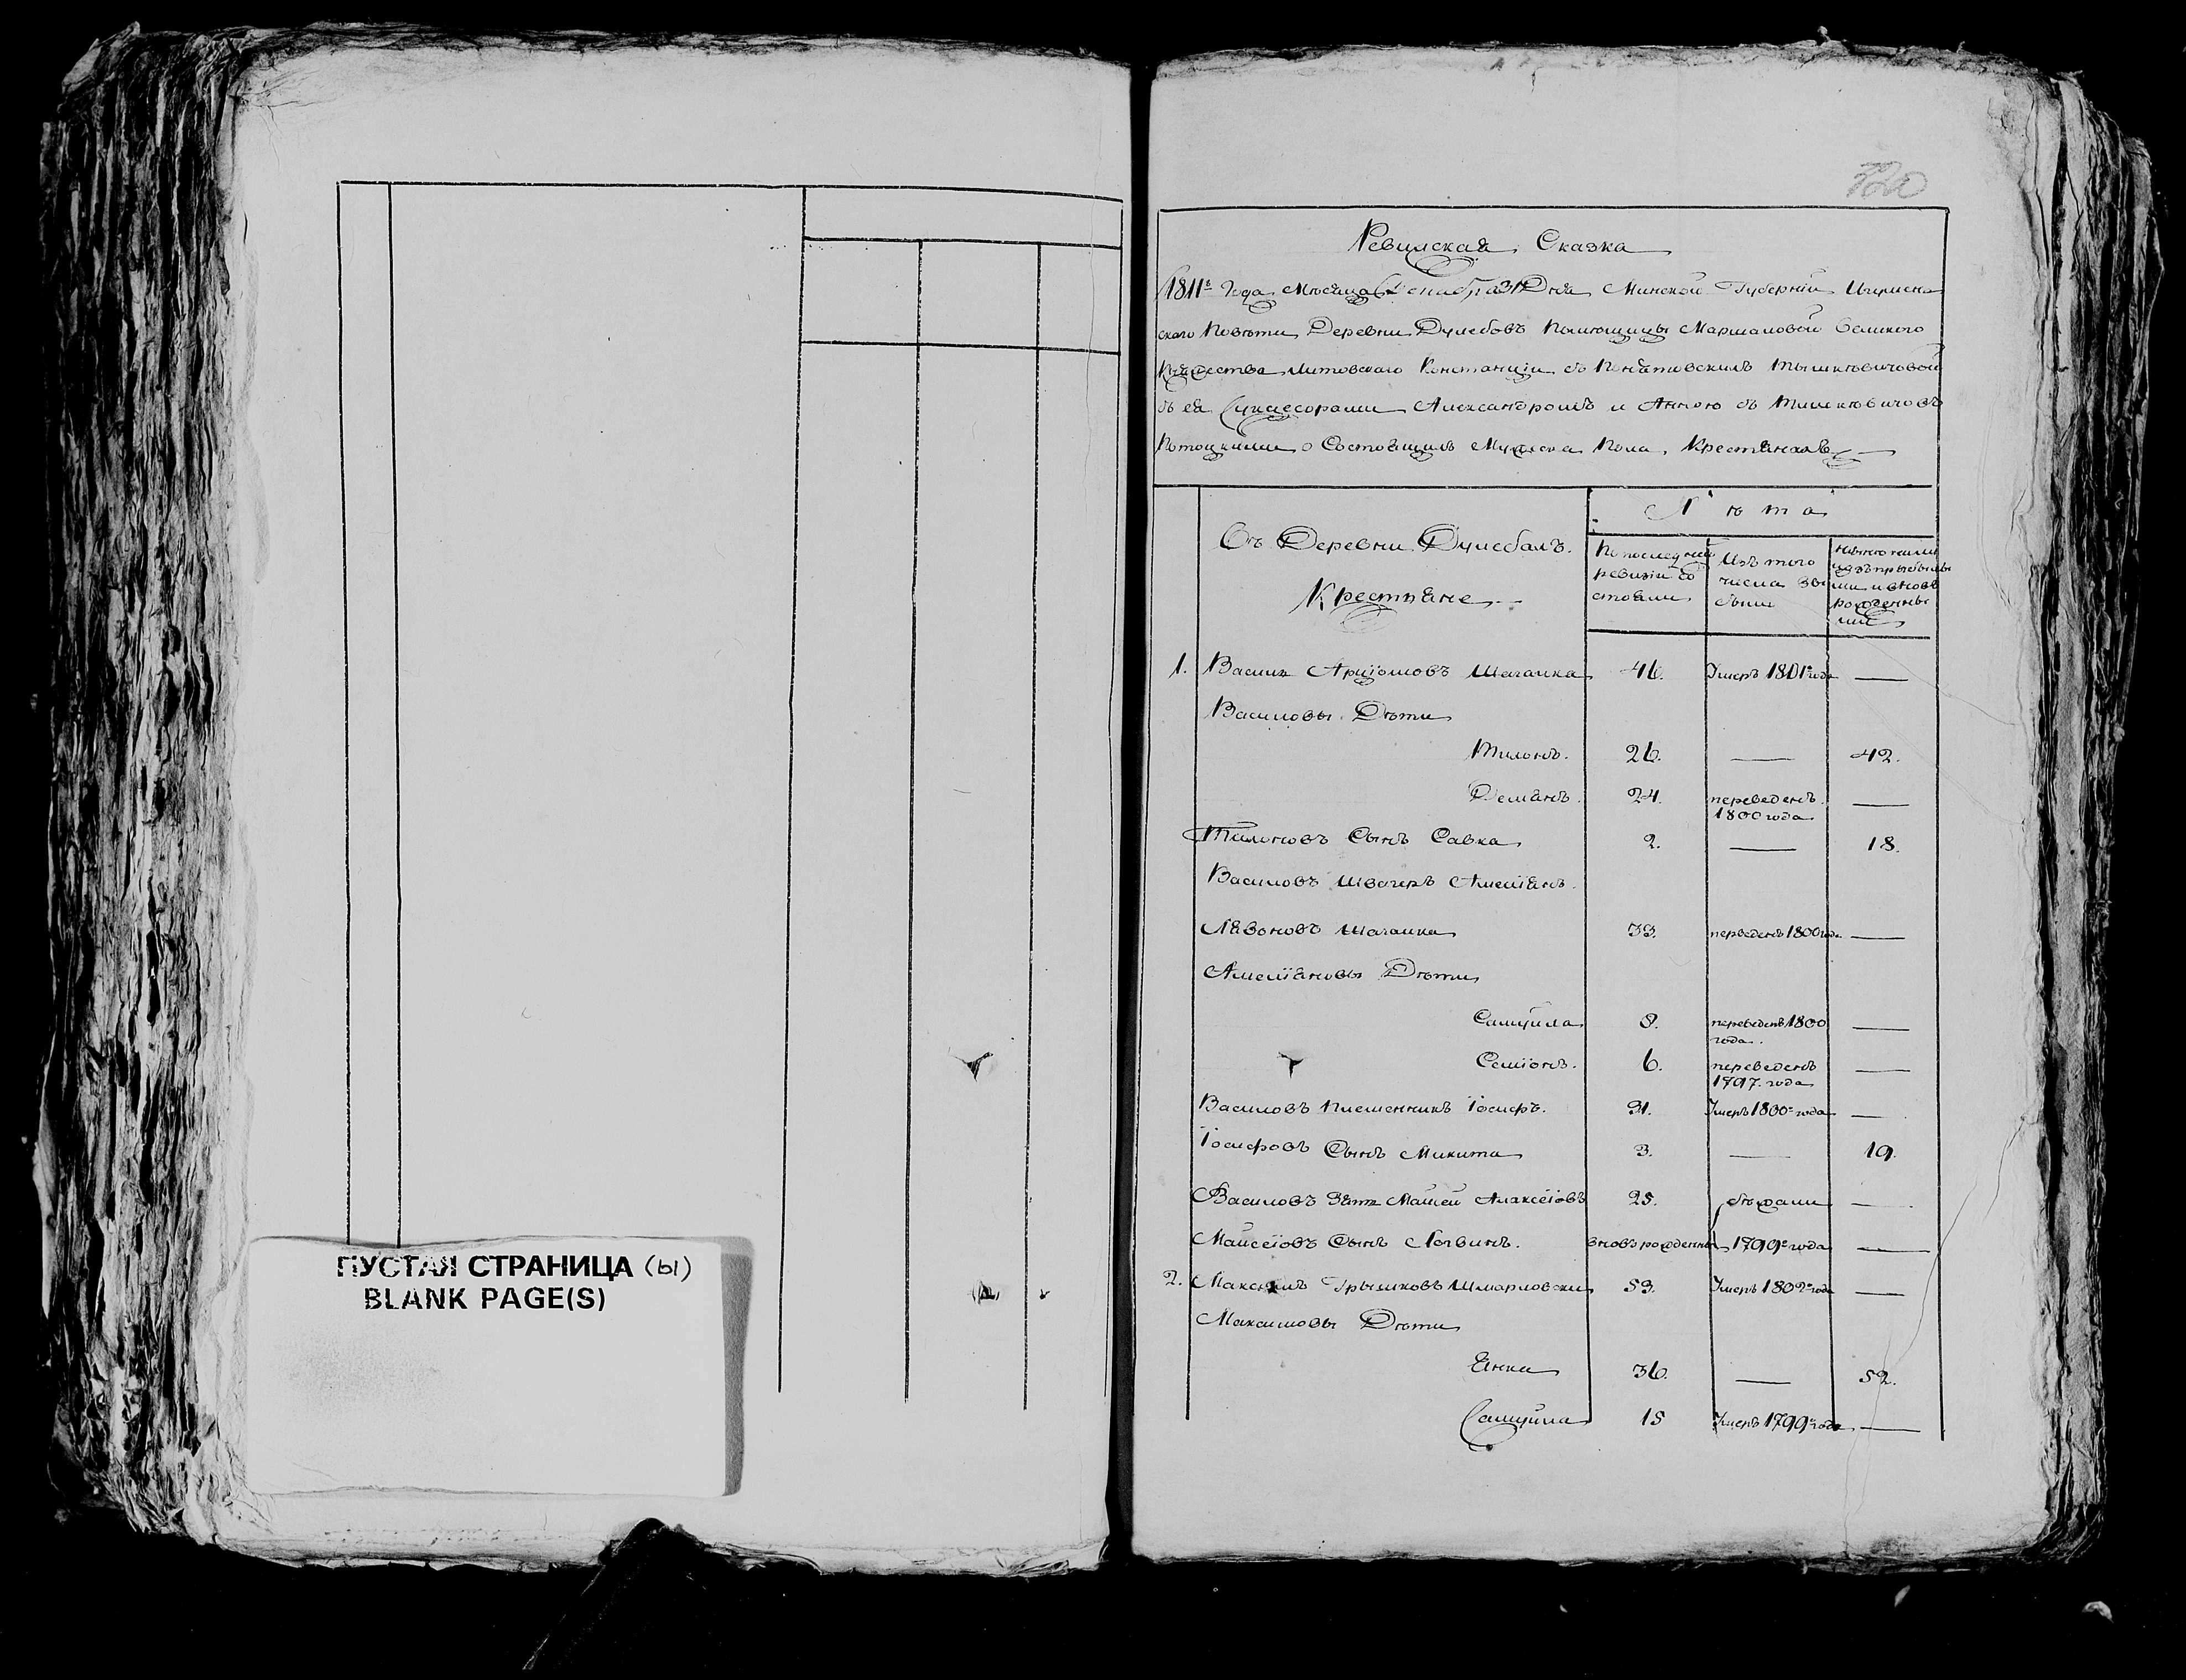 ПУСТАЯ СТРАНИЦА (ы)
BLANK PAGE(S)
320
Ревизская Сказка
1811го Года Месяца Декабра 31 Дня Минской Губернии Игумен
ского Повѣта Деревни Дулебовъ Помещицы Маршаловой Великого
Княжества Литовского Констанціи съ Понятовскихъ Тышкѣвичовой
съ ея Сукцесорами Александромъ и Анною съ Тишкѣвичовъ
Потоцкими о Состоящихъ Мужеска Пола Крестянахъ
Лѣта
Въ Деревни Дулебахъ.
Крестьяне
По последней
ревизіи со
стояли
Изъ того
числа вы
было
Ныне налицо
изъ прыбылы
ми и вновь
рожденны
ми
1. Васили Арціомовъ Шаганка 46. Умеръ 1801го года —
Васиовы Дѣти
Тимохъ. 26. — 42.
Демянъ. 24. переведенъ 1800 года —
Тимоховъ Сынъ Савка 2. — 18.
Василовъ Швагеръ Амеліянъ
Лявоновъ Шаганка 33. переведенъ 1800 года —
Амеліяновы Дѣти
Самуйла 8. переведенъ 1800 года. —
Семіонъ. 6. переведенъ 1797 года —
Василовъ Племенникъ Іосифъ. 21. Умеръ 1800го года —
Іосифовъ Сынъ Микита 3. — 19.
Василовъ Зять Мацей Алаксеіовъ 25. бѣжали —
Мацеіовъ Сынъ Логвинъ. вновь рожденны 1799го года —
2. Максимъ Грышковъ Шмарловски 53. Умеръ 1802го года —
Максимовы Дѣти
Янка 36. — 52.
Самуйла 15 Умеръ 1799го года —